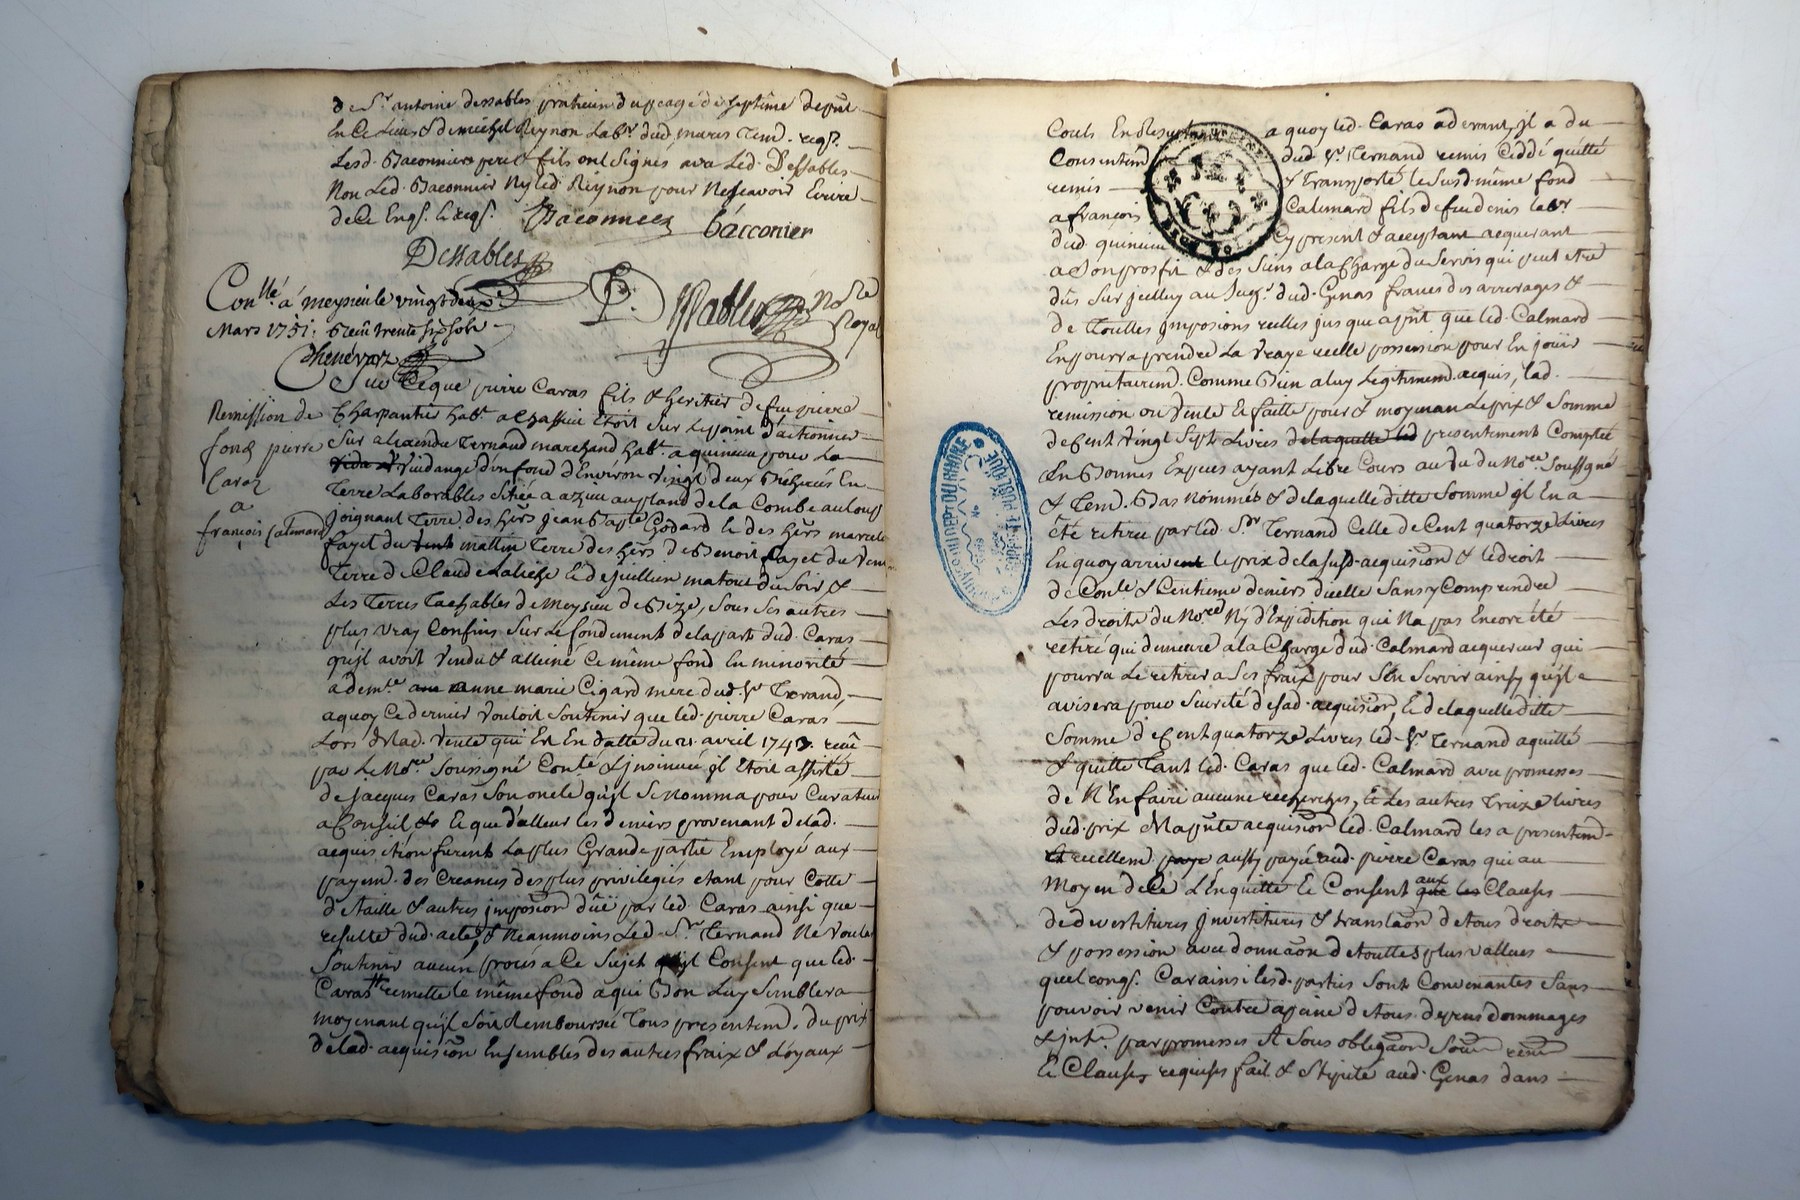 de Sr. antoine dessables praticien du peage de septême depnt
En Ce Lieu & de michel Reynon Labr. dud. mures Tem. reqs.
Lesd. Baconniers pere & fils ont signés avec Led. Dessables
Non Led. Baconnier Ny led. Reynon pour Ne sçavoir Ecrire
de Ce Enqs. & reqs. Baconnier bacconier
Dessables
Conllé. á meysieu le vingt deux
Mars 1751. Receu trente six sols
Chenévaz
No.re Royal
Remission de
fond pierre
Caraz
a
françois Calemard
Sur Ce que pierre Caras fils & heritier de feu pierre
Charpantier habt. a Chassieu Etoit sur Le point d'actionner
Sur alixendre Ternaud marchand habt. a quinieu pour La
Vuidange d'un fond d'Environ Vingt deux Bicherées En
Terre Laborables Sitüé a azieu au pland de la Combe au loup
joignant Terre des hers jean Bapte. Godard le des hers marcel
fayet du mattin Terre des hers de Benoit fayet du Vent
Terre de Claude Laliche & de jullien du Soir &
Les Terres Tachables de Meysieu de Bize, Sous Ses autres
plus vray Confins Sur Le fondement de la part dud. Caras
qu'jl avoit Vendu & alleiné Ce même fond En minorité
a demlle. anne marie Cigard mere dud. Sr. Terand,
a quoy Ce dernier Vouloit Soutenir que led. pierre Caras
Lors de Lad. Vente qui Est En datte du 21. avril 1743. receüe
par Le Nore. Soussigné Conlé & jnsinuée jl Etoit assisté
de Jacques Caras Son oncle qu'jl Se Nomma pour Curateur
a Conseil & que d'alleur les deniers provenant de lad.
acquisition furent La plus Grande partie Employé aux
payem. des Creances des plus privilegiés etant pour Cotte
d'taille & autres jmposion düe par led. Caras ainsi que
resulte dud. acte, & Neanmoins Led. Sr. Ternand Ne Voulant
Soutenir aucun procés a Ce Sujet Consent que led.
Caras remette le même fond a qui Bon Luy Semblera
moyenant qu'jl Soit Remboursée Tous presentem. du prix
de lad. acquision Ensembles des autres fraix & Loyaux
Couts En Resultant a quoy led. Caras aderant, jl a du
Consentem dud Sr. Ternand remis Ceddé quitté
remis & Transporté le Susd. même fond
a françois Calemard fils de feu denis Labr
dud. quinieu Cy present & acceptant acquerant
a Son prosfit & des Siens a la Charge du Servis qui peut etre
dûs Sur jcelluy au Seigr. dud. Genas francs des arrerages &
de Touttes jmposions reelles jusque a pnt que led. Calmard
En pourra prendre La Vraye reelle possession pour En joüir
proprietairem. Comme Bien a luy Legitimem. acquis, lad.
remission ou Vente & faitte pour & moyenan Le prix & Somme
de Cent Vingt Sept Livres de laquelle led presentement Comptée
En Bonnes Especes ayant Libre Cours au Vu du Nore. Soussigné
& Tem. Bas Nommés & de laquelle ditte Somme jl En a
été retiree par led. Sr. Ternand Celle de Cent quatorze Livres
En quoy arrivent le prix de la susd. acquision & le droit
de Conlle & Centieme deniers d'icelle Sans y Comprendre
Les droits du Nore. Ny d'Expedition qui Na pas Encore été
retiré qui demeure a la Charge dud. Calmard acquereur qui
pourra Le retirer a Ses fraix pour S'en Servir ainsy qu'jl
avisera pour Seureté de sad. acquision, & de laquelle ditte
Somme de Cent quatorze Livres led. Sr. Ternand a quitté
& quitte Tant led. Caras que led. Calmard avec promesses
de N'En faire aucune recherches, & Les autres Treize livres
dud. prix de la pnte acquision led. Calmard les a presentem.
& reellem. paye aussy payé aud. pierre Caras qui au
moyen de Ce L'En quitte & Consent aux Clauses
de devestitures jnvestitures & translaon de tous droits
& possession avec donnaon de touttes plus vallues
quel conqs. Car ainsi lesd. parties Sont Convenantes Sans
pouvoir venir Contre a peine de tous depens dommages
& jnts. par promesses & Sous obligaon Soum renon
& Clauses requises fait & Stipulé aud. Genas dans